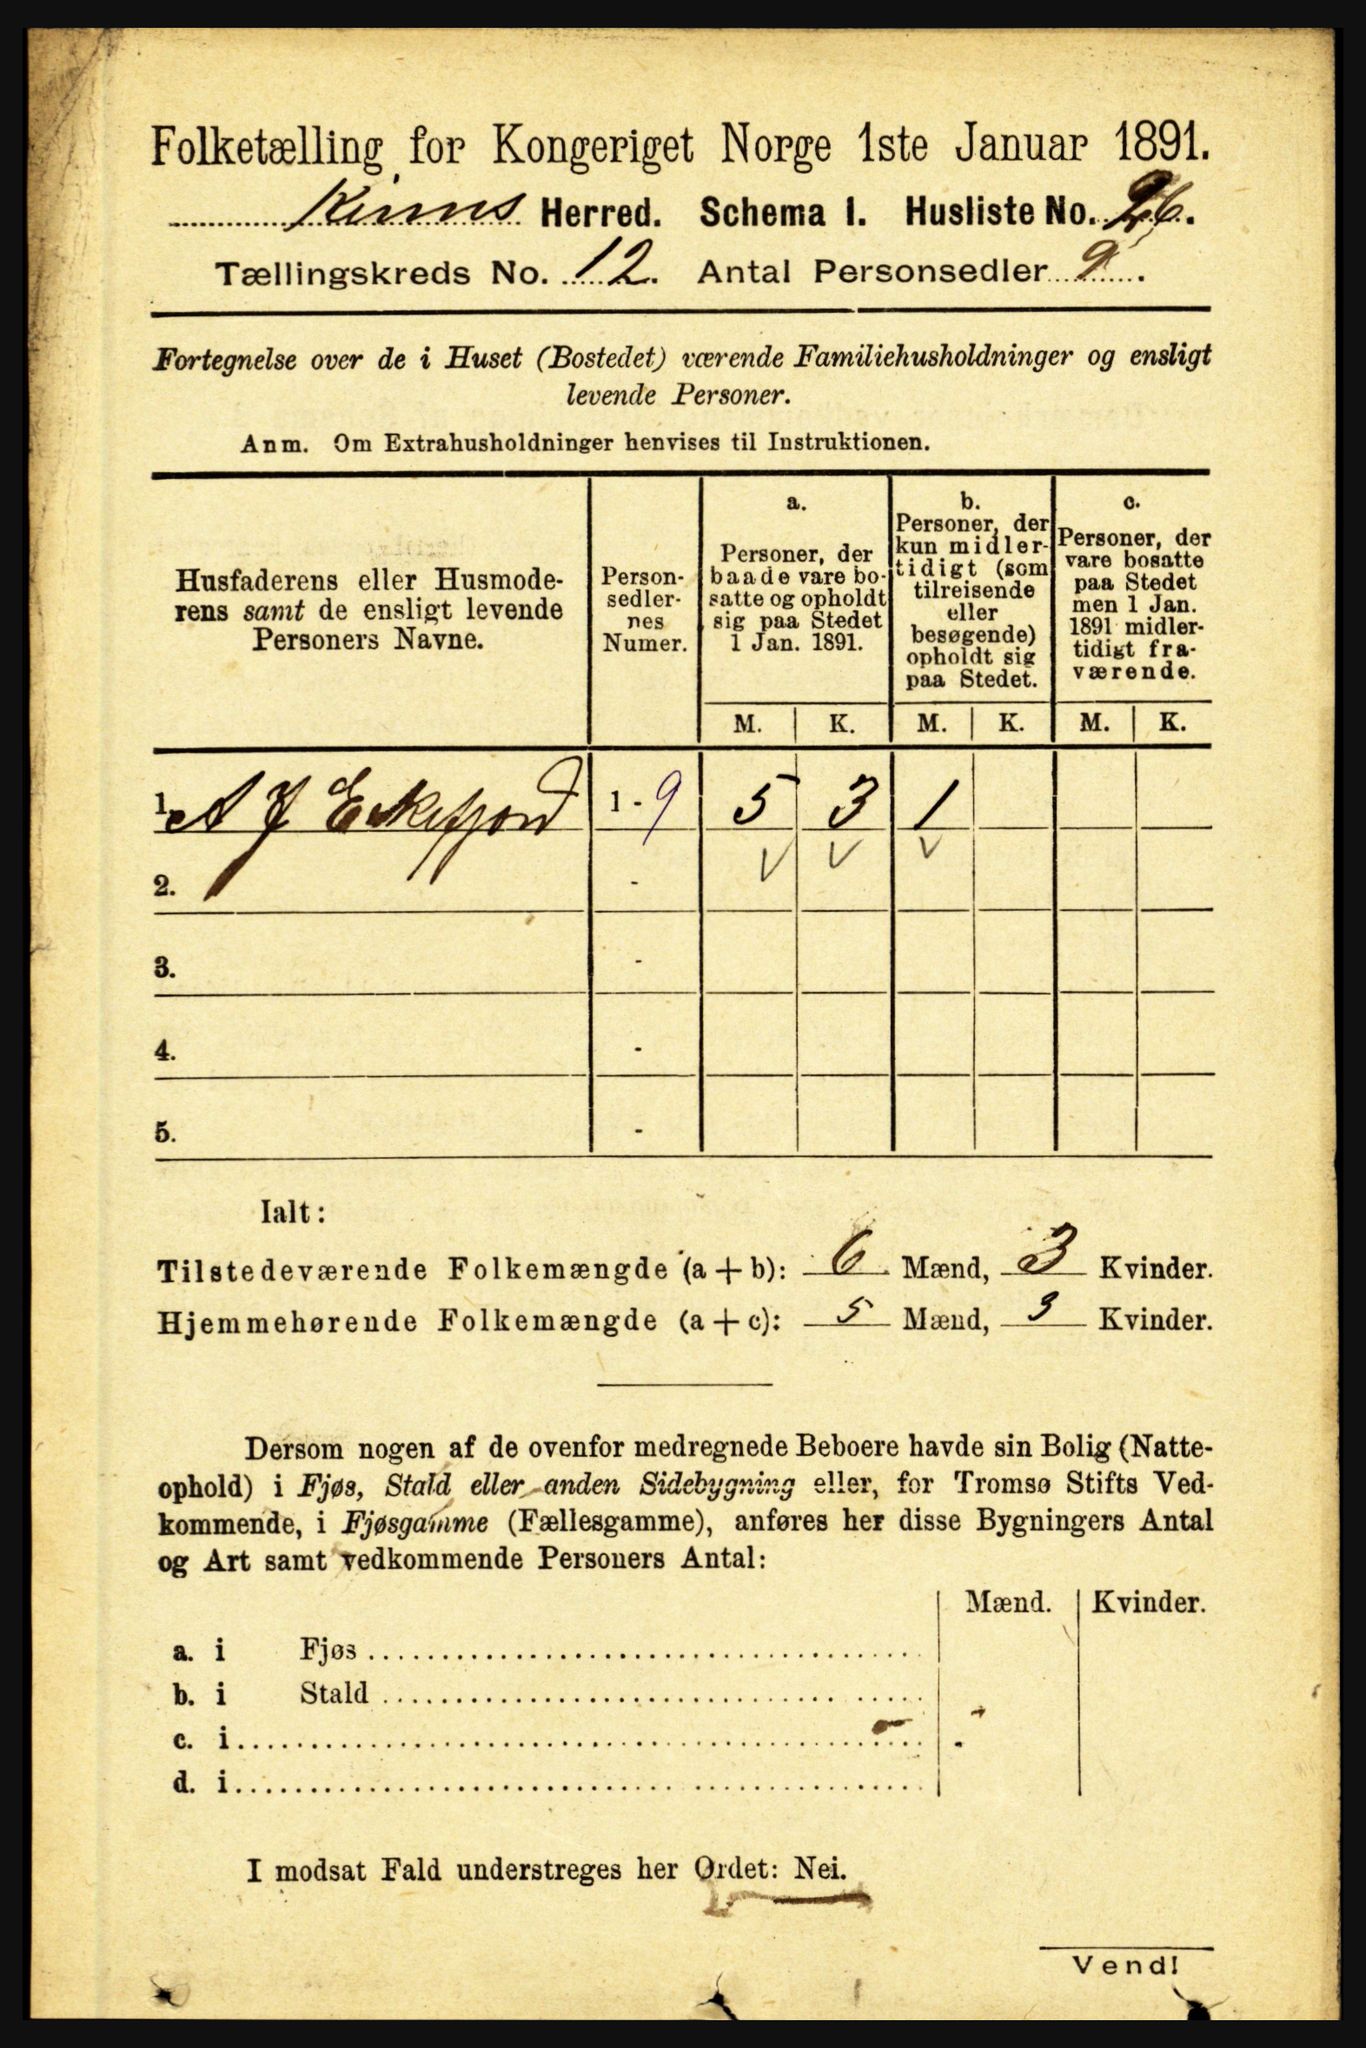 Folketælling for Kongeriget Norge 1ste Januar 1891.
Kinns Herred. Schema I. Husliste No. 26.
Tællingskreds No. 12. Antal Personsedler 9.
Fortegnelse over de i Huset (Bostedet) værende Familiehusholdninger og ensligt
levende Personer.
Anm. Om Extrahusholdninger henvises til Instruktionen.
Husfaderens eller Husmode-
rens samt de ensligt levende
Personers Navne.
Person-
sedler-
nes
Numer.
a.
Personer, der
baade vare bo-
satte og opholdt
sig paa Stedet
1 Jan. 1891.
b.
Personer, der
kun midler-
tidigt (som
tilreisende
eller
besøgende)
opholdt sig
paa Stedet.
c.
Personer, der
vare bosatte
paa Stedet
men 1 Jan.
1891 midler-
tidigt fra-
værende.
M. K. M. K. M. K.
1. A J Eikefjord 1 - 9 5 3 1
2. -
3. -
4. -
5. -
Ialt:
Tilstedeværende Folkemængde (a + b): 6 Mænd, 3 Kvinder.
Hjemmehørende Folkemængde (a + c): 5 Mænd, 3 Kvinder.
Dersom nogen af de ovenfor medregnede Beboere havde sin Bolig (Natte-
ophold) i Fjøs, Stald eller anden Sidebygning eller, for Tromsø Stifts Ved-
kommende, i Fjøsgamme (Fællesgamme), anføres her disse Bygningers Antal
og Art samt vedkommende Personers Antal:
Mænd. Kvinder.
a. i Fjøs
b. i Stald
c. i
d. i
I modsat Fald understreges her Ordet: Nei.
Vend!